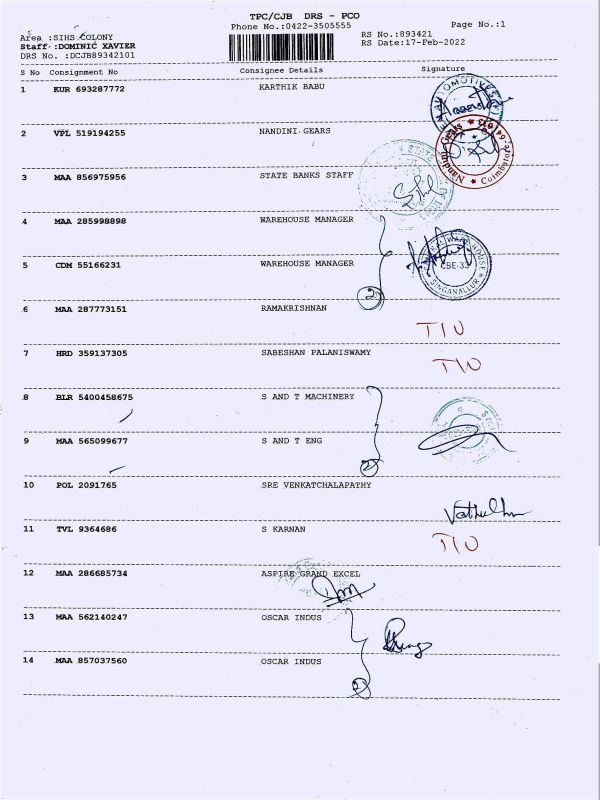 TPC/CJB DRS - PCO
Phone No.:0422-3505555
Page No.:1
Area :SIHS COLONY
RS No.:893421
Staff :DOMINIC XAVIER
RS Date:17-Feb-2022
DRS No. :DCJB89342101
S No Consignment No Consignee Details Signature
1 KUR 693287772 KARTHIK BABU
AUTOMOTIVE
2 VPL 519194255 NANDINI GEARS
Nandini Gears ★ Coimbatore
3 MAA 856975956 STATE BANKS STAFF
STATE
4 MAA 285998898 WAREHOUSE MANAGER
WAREHOUSE
CBE-33
SINGANALLUR
5 CDM 55166231 WAREHOUSE MANAGER
2
6 MAA 287773151 RAMAKRISHNAN
T10
7 HRD 359137305 SABESHAN PALANISWAMY
T10
8 BLR 5400458675 S AND T MACHINERY
9 MAA 565099677 S AND T ENG
2
10 POL 2091765 SRE VENKATCHALAPATHY
11 TVL 9364686 S KARNAN
T10
12 MAA 286685734 ASPIRE GRAND EXCEL
13 MAA 562140247 OSCAR INDUS
14 MAA 857037560 OSCAR INDUS
2